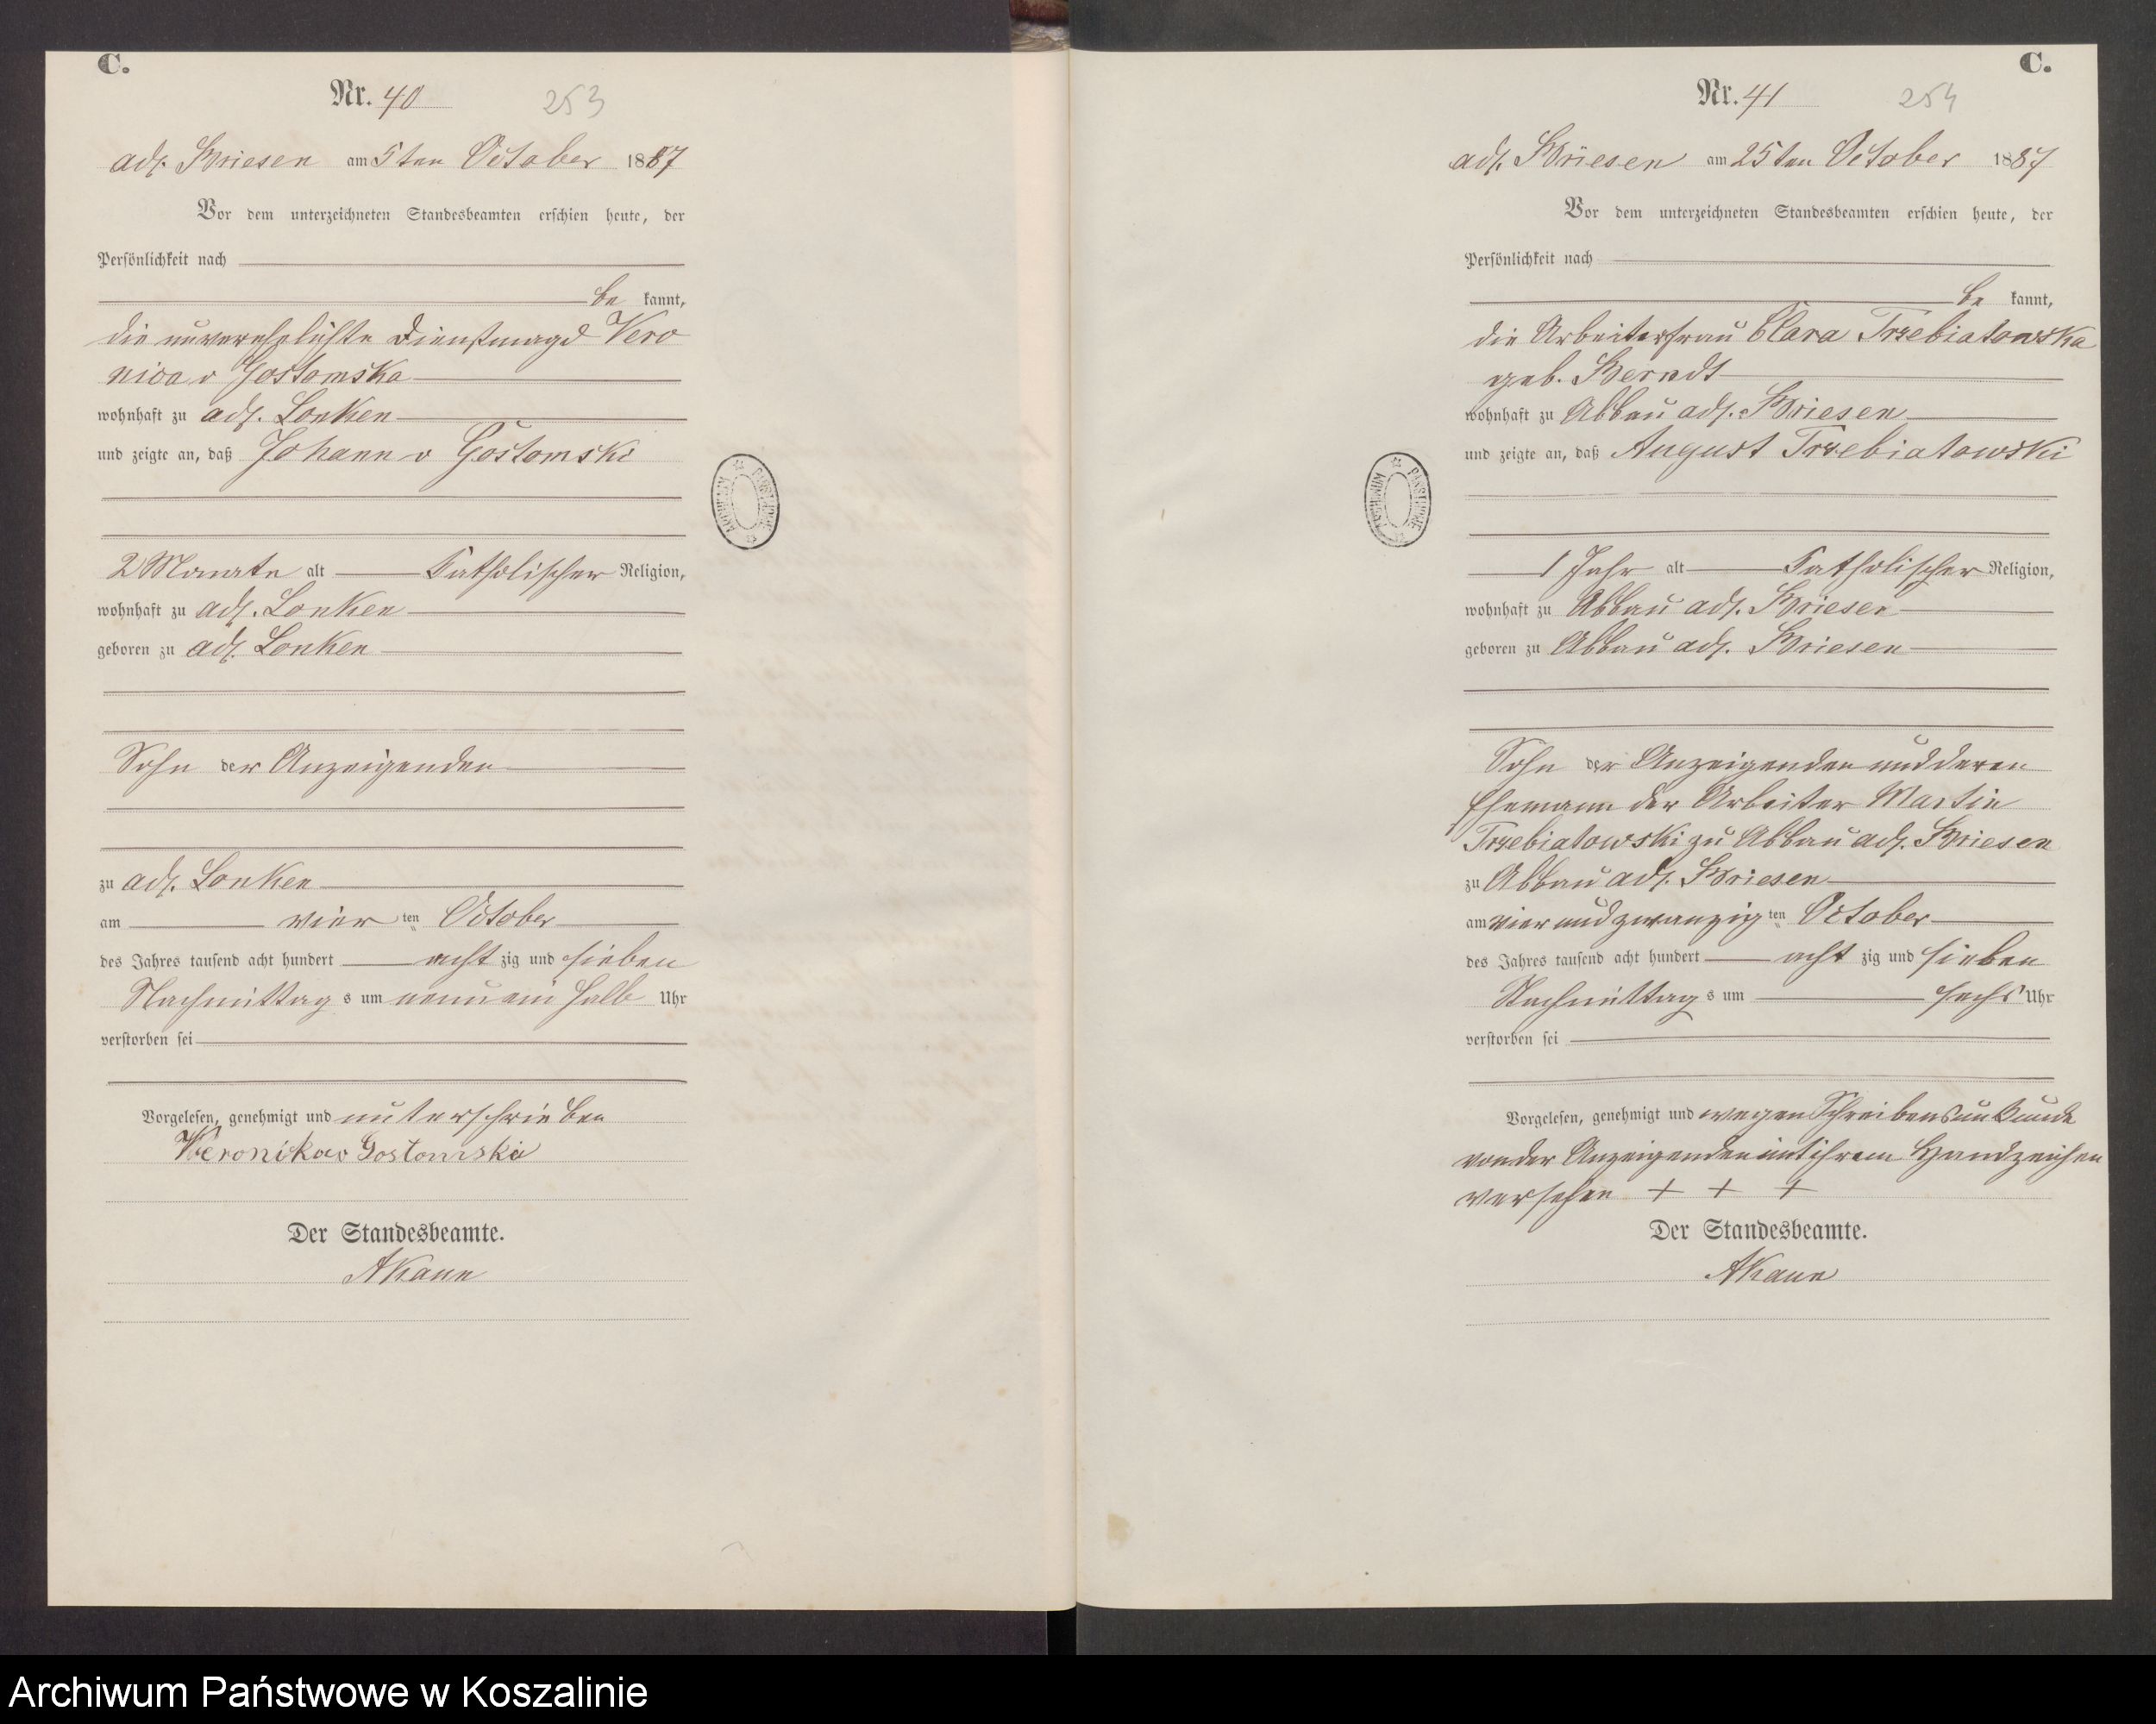 C.
Nr. 40 253
adl. Briesen am 5ten October 1887
Vor dem unterzeichneten Standesbeamten erschien heute, der
Persönlichkeit nach
be kannt,
die unverehelichte Dienstmagd Vero
nica v Gostomska
wohnhaft zu adl. Lonken
und zeigte an, daß Johann v Gostomski
2 Monate alt Katholischer Religion,
wohnhaft zu adl. Lonken
geboren zu adl. Lonken
Sohn der Anzeigenden
zu adl. Lonken
am vier ten October
des Jahres tausend acht hundert acht zig und sieben
Nachmittag s um neun ein halb Uhr
verstorben sei
Vorgelesen, genehmigt und unterschrieben
Veronika v Gostomska
Der Standesbeamte.
AKaun
ARCHIWUM PAŃSTWOWE
C.
Nr. 41 254
adl. Briesen am 25ten October 1887
Vor dem unterzeichneten Standesbeamten erschien heute, der
Persönlichkeit nach
be kannt,
die Arbeiterfrau Clara Trzebiatowska
geb. Berndt
wohnhaft zu Abbau adl. Briesen
und zeigte an, daß August Trzebiatowski
1 Jahr alt Katholischer Religion,
wohnhaft zu Abbau adl. Briesen
geboren zu Abbau adl. Briesen
Sohn der Anzeigenden und deren
Ehemann der Arbeiter Martin
Trzebiatowski zu Abbau adl. Briesen
zu Abbau adl. Briesen
am vier und zwanzig ten October
des Jahres tausend acht hundert acht zig und sieben
Nachmittag s um sechs Uhr
verstorben sei
Vorgelesen, genehmigt und wegen Schreibensunkunde
von der Anzeigenden mit ihrem Handzeichen
versehen + + +
Der Standesbeamte.
AKaun
ARCHIWUM PAŃSTWOWE
Archiwum Państwowe w Koszalinie